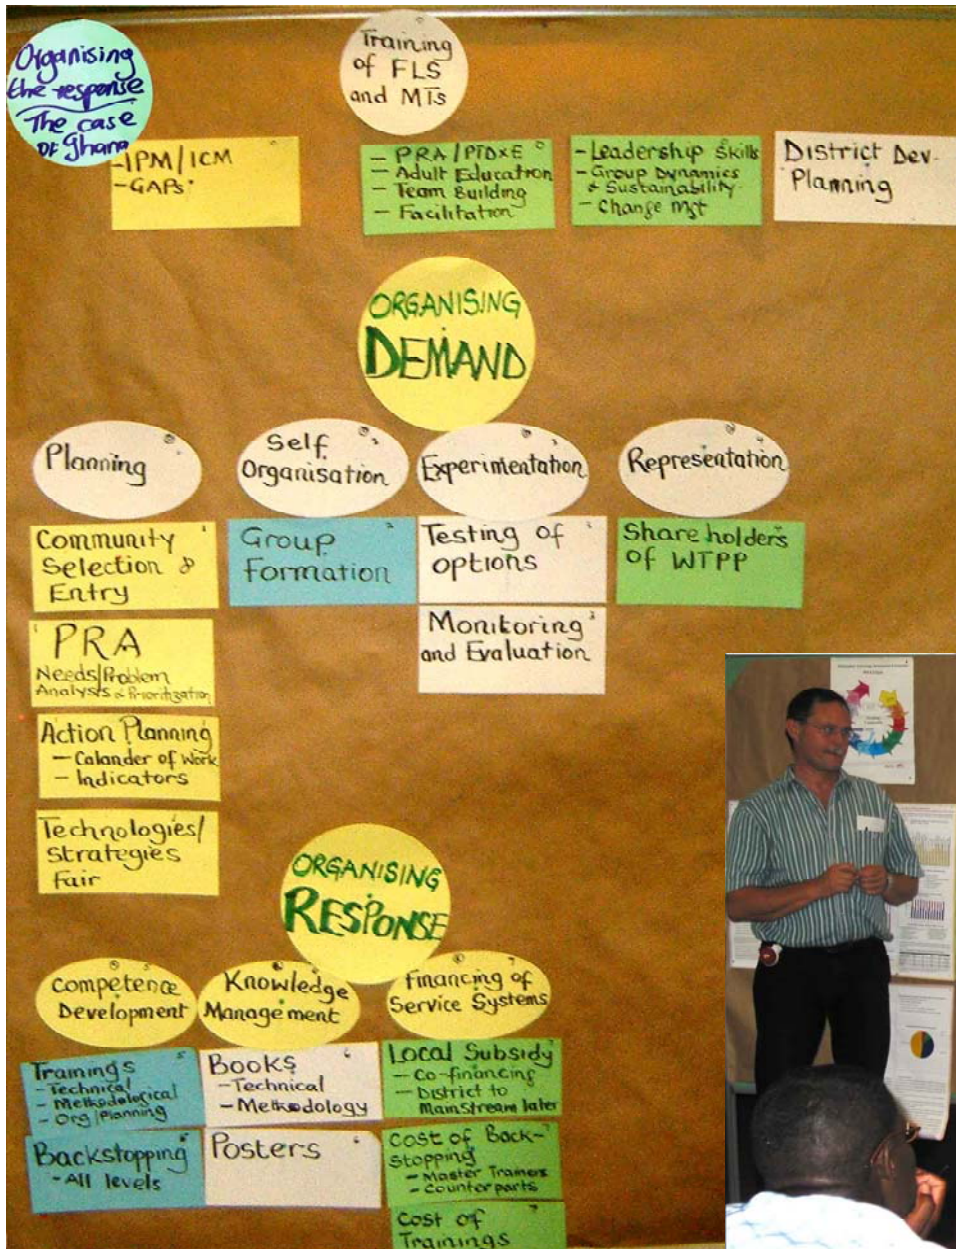 Organising
the response
The case
of Ghana
Training
of FLS
and MTs
-IPM/ICM
-GAPs
- PRA/PTDxE
- Adult Education
- Team Building
- Facilitation
-Leadership Skills
- Group Dynamics
& Sustainability
- Change mgt
District Dev-
Planning
ORGANISING
DEMAND
Planning
Self
Organisation
Experimentation
Representation
Community
Selection &
Entry
PRA
Needs/Problem
Analysis & Prioritization
Action Planning
- Calander of Work
- Indicators
Technologies/
Strategies
Fair
Group
Formation
Testing of
options
Monitoring
and Evaluation
Shareholders
of WTPP
ORGANISING
RESPONSE
Competence
Development
Knowledge
Management
Financing of
Service Systems
Trainings
- Technical
- Methodological
- Org/Planning
Backstopping
- All levels
Books
- Technical
- Methodology
Posters
Local Subsidy
- Co-financing
- District to
Mainstream later
Cost of Back-
stopping
- Master Trainers
- Counterparts
Cost of
Trainings